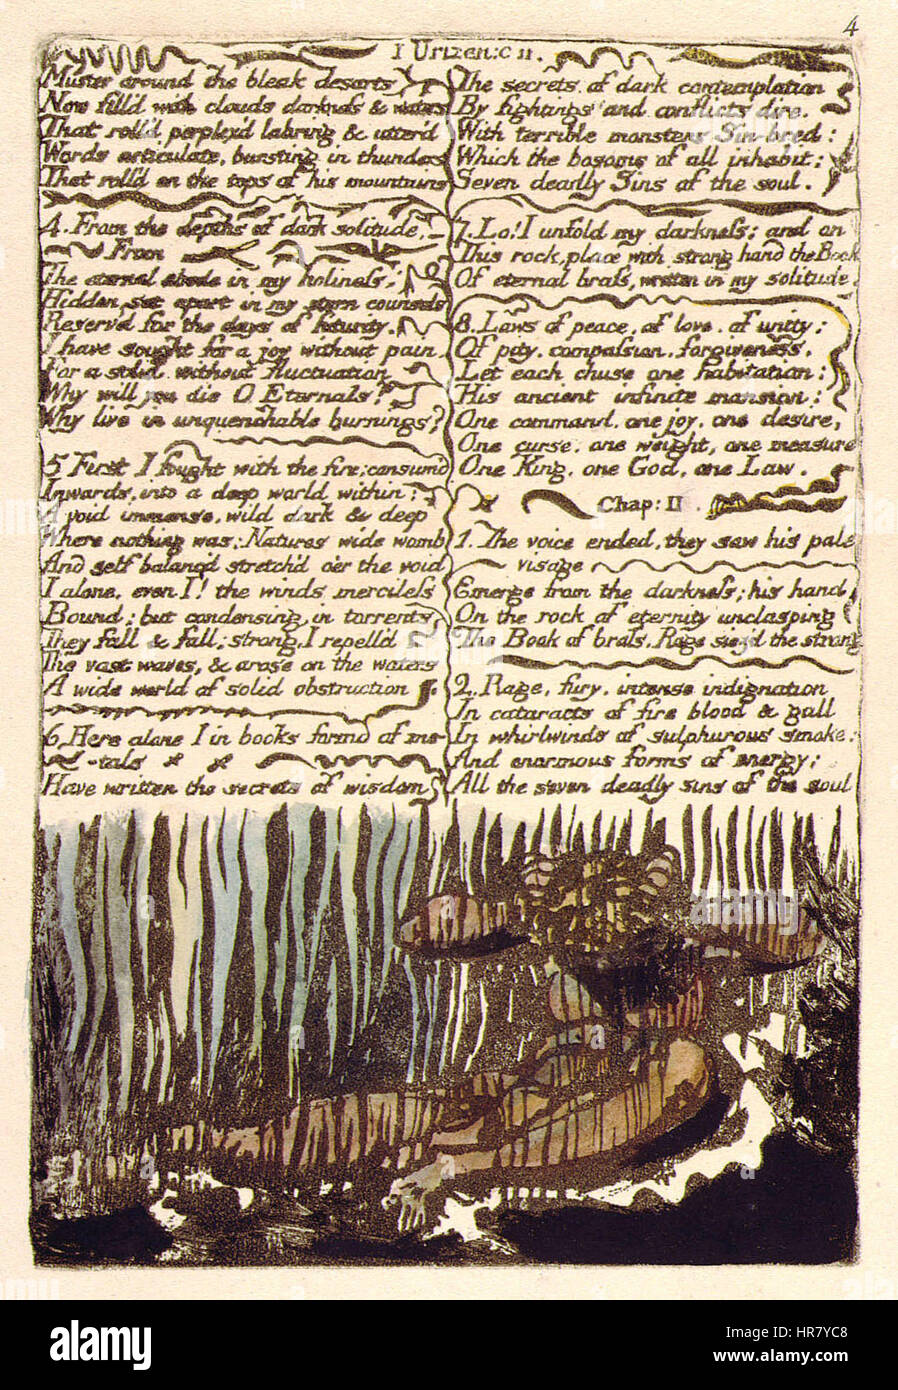 4
1 Urizen: C II.
Muster around the bleak desarts
Now fill'd with clouds darkneſs & waters
That roll'd perplex'd labring & utter'd
Words articulate, bursting in thunders
That roll'd on the tops of his mountains
4. From the depths of dark solitude.
From
The eternal abode in my holineſs,
Hidden, set apart in my stern counsels
Reserv'd for the days of futurity.
I have sought for a joy without pain,
For a solid without fluctuation
Why will you die O Eternals?
Why live in unquenchable burnings?
5 First I fought with the fire; consum'd
Inwards, into a deep world within:
A void immense, wild dark & deep
Where nothing was; Natures wide womb
And self balanc'd stretch'd o'er the void
I alone, even I! the winds mercileſs
Bound; but condensing, in torrents
They fall & fall; strong, I repell'd
The vast waves, & arose on the waters
A wide world of solid obstruction
6. Here alone I in books form'd of me-
-tals
Have written the secrets of wisdom
The secrets of dark contemplation
By fightings and conflicts dire.
With terrible monsters Sin-bred:
Which the bosoms of all inhabit;
Seven deadly Sins of the soul.
7. Lo! I unfold my darkneſs; and on
This rock, place with strong hand the Book
Of eternal braſs, written in my solitude.
8. Laws of peace, of love, of unity:
Of pity, compaſsion, forgiveneſs.
Let each chuse one habitation:
His ancient infinite mansion:
One command, one joy, one desire,
One curse, one weight, one measure
One King, one God, one Law.
Chap: II
1. The voice ended, they saw his pale
visage
Emerge from the darkneſs; his hand
On the rock of eternity unclasping
The Book of braſs. Rage siezd the strong
2. Rage, fury, intense indignation
In cataracts of fire blood & gall
In whirlwinds of sulphurous smoke:
And enormous forms of energy;
All the seven deadly sins of the soul
alamy
Image ID: HR7YC8
www.alamy.com